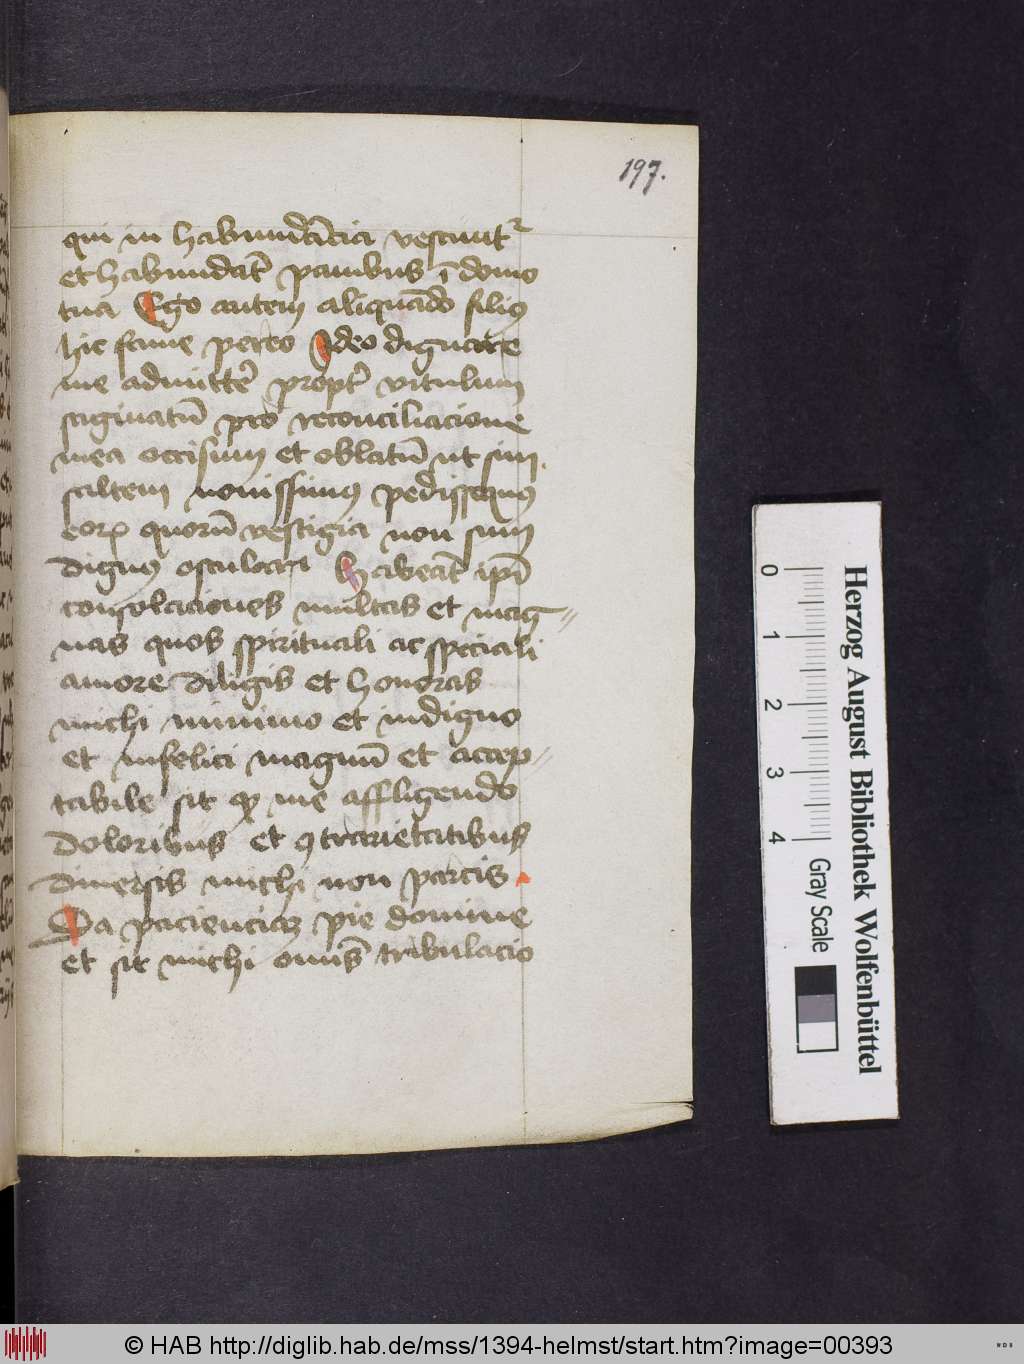 197.
qui in habundācia vescunt᷑
et habundāt panibus ī domo
tua Ego autem aliquādo filiꝰ
hic fame pereo Ideo dignare
me admitte᷑ propt᷑ vitulum
saginatū pro reconciliacione
mea occisum et oblatū ut sim
saltem nouissimꝰ pedissequꝰ
eoꝝ quorū vestigia non sum
dignꝰ osculari Habeāt ip̄i
consolaciones multas et mag⸗
nas quos spirituali ac speciali
amore diligis et honoras
michi minimo et indigno
et infelici magnū et accep⸗
tabile sit qɂ me affligendo
doloribus et ꝯtrarietatibus
diuersis michi non parcis
Da pacienciaꝫ pie domine
et sit michi omīs tribulacio
Herzog August Bibliothek Wolfenbüttel
0 1 2 3 4
Gray Scale
© HAB http://diglib.hab.de/mss/1394-helmst/start.htm?image=00393
WDB